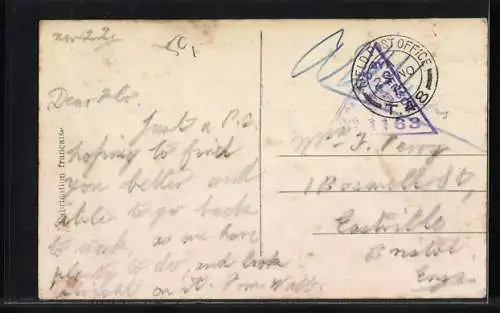 Nov 22
Dear Flo.
Just a P.C.
hoping to find
you better and
able to go back
to work, as we have
plenty to do, and look
on it. From Walt.
Fabrication française
FIELD POST OFFICE
NO
T.4
8
PASSED
CENSOR
1163
Mrs J. Perry
1 Boswell St,
Eastville
Bristol.
Eng.